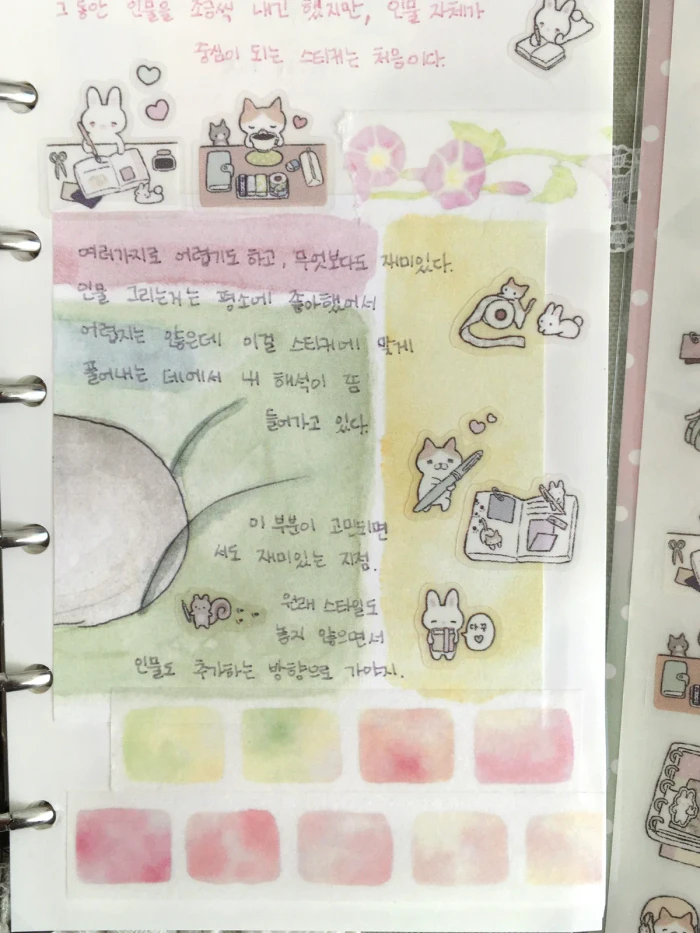 그동안 인물을 조금씩 내긴 했지만, 인물 자체가
중심이 되는 스티커는 처음이다.
여러가지로 어렵기도 하고, 무엇보다도 재미있다.
인물 그리는거는 평소에 좋아했어서
어렵지는 않은데 이걸 스티커에 맞게
풀어내는 데에서 내 해석이 또
들어가고 있다.
이 부분이 고민되면
서도 재미있는 지점.
원래 스타일도
놓지 않으면서
인물도 추가하는 방향으로 가야지.
다꾸